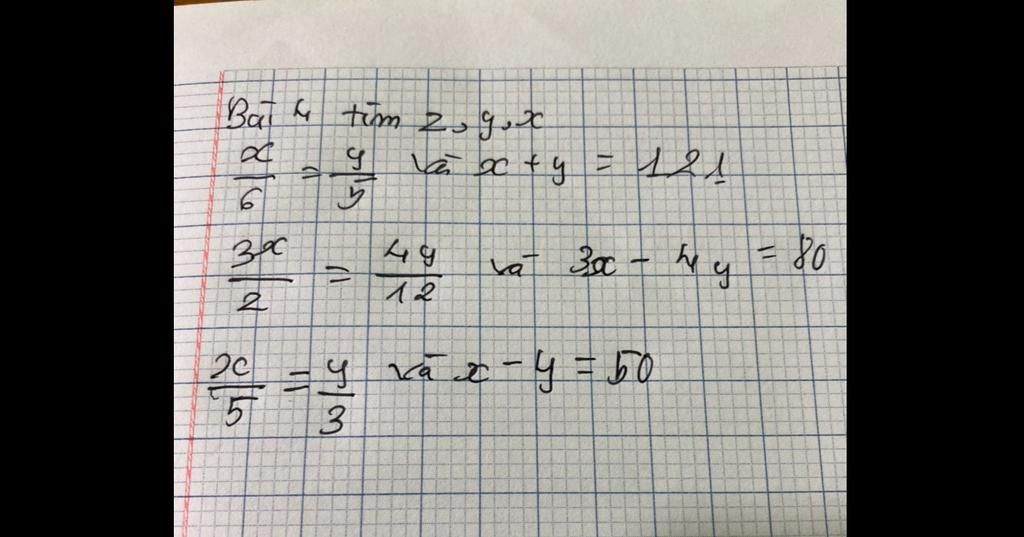 Bài 4 tìm z, y, x
x/6 = y/5 và x + y = 121
3x/2 = 4y/12 và 3x - 4y = 80
x/5 = y/3 và x - y = 50